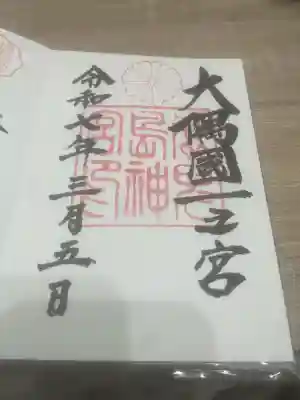 大隅國一之宮
鹿兒島神宮印
令和七年三月五日